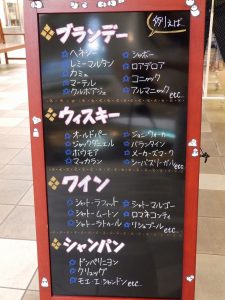 例えば
ブランデー
ヘネシー
レミーマルタン
カミュ
マーテル
クルボアジェ
シャボー
ロアデロア
コニャック
アルマニャック etc
ウィスキー
オールドパー
ジャックダニエル
ボウモア
マッカラン
ジョニウォーカー
バランタイン
メーカーズマーク
シーバスリーガル etc
ワイン
シャトーラフィット
シャトームートン
シャトーラトゥール
シャトーマルゴー
ロマネコンティ
リシュブール etc
シャンパン
ドンペリニヨン
クリュッグ
モエ・エ シャンドン etc